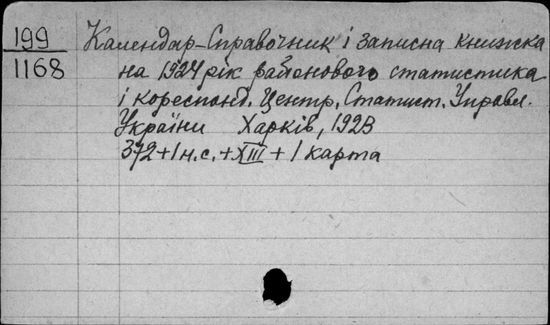 199
1168
Календар-Справочник і записна книжка
на 1924 рік районового статистика
і кореспонд. Центр. Статист. Управл.
України Харків, 1923
372+1 н.с.+XIII+1 карта